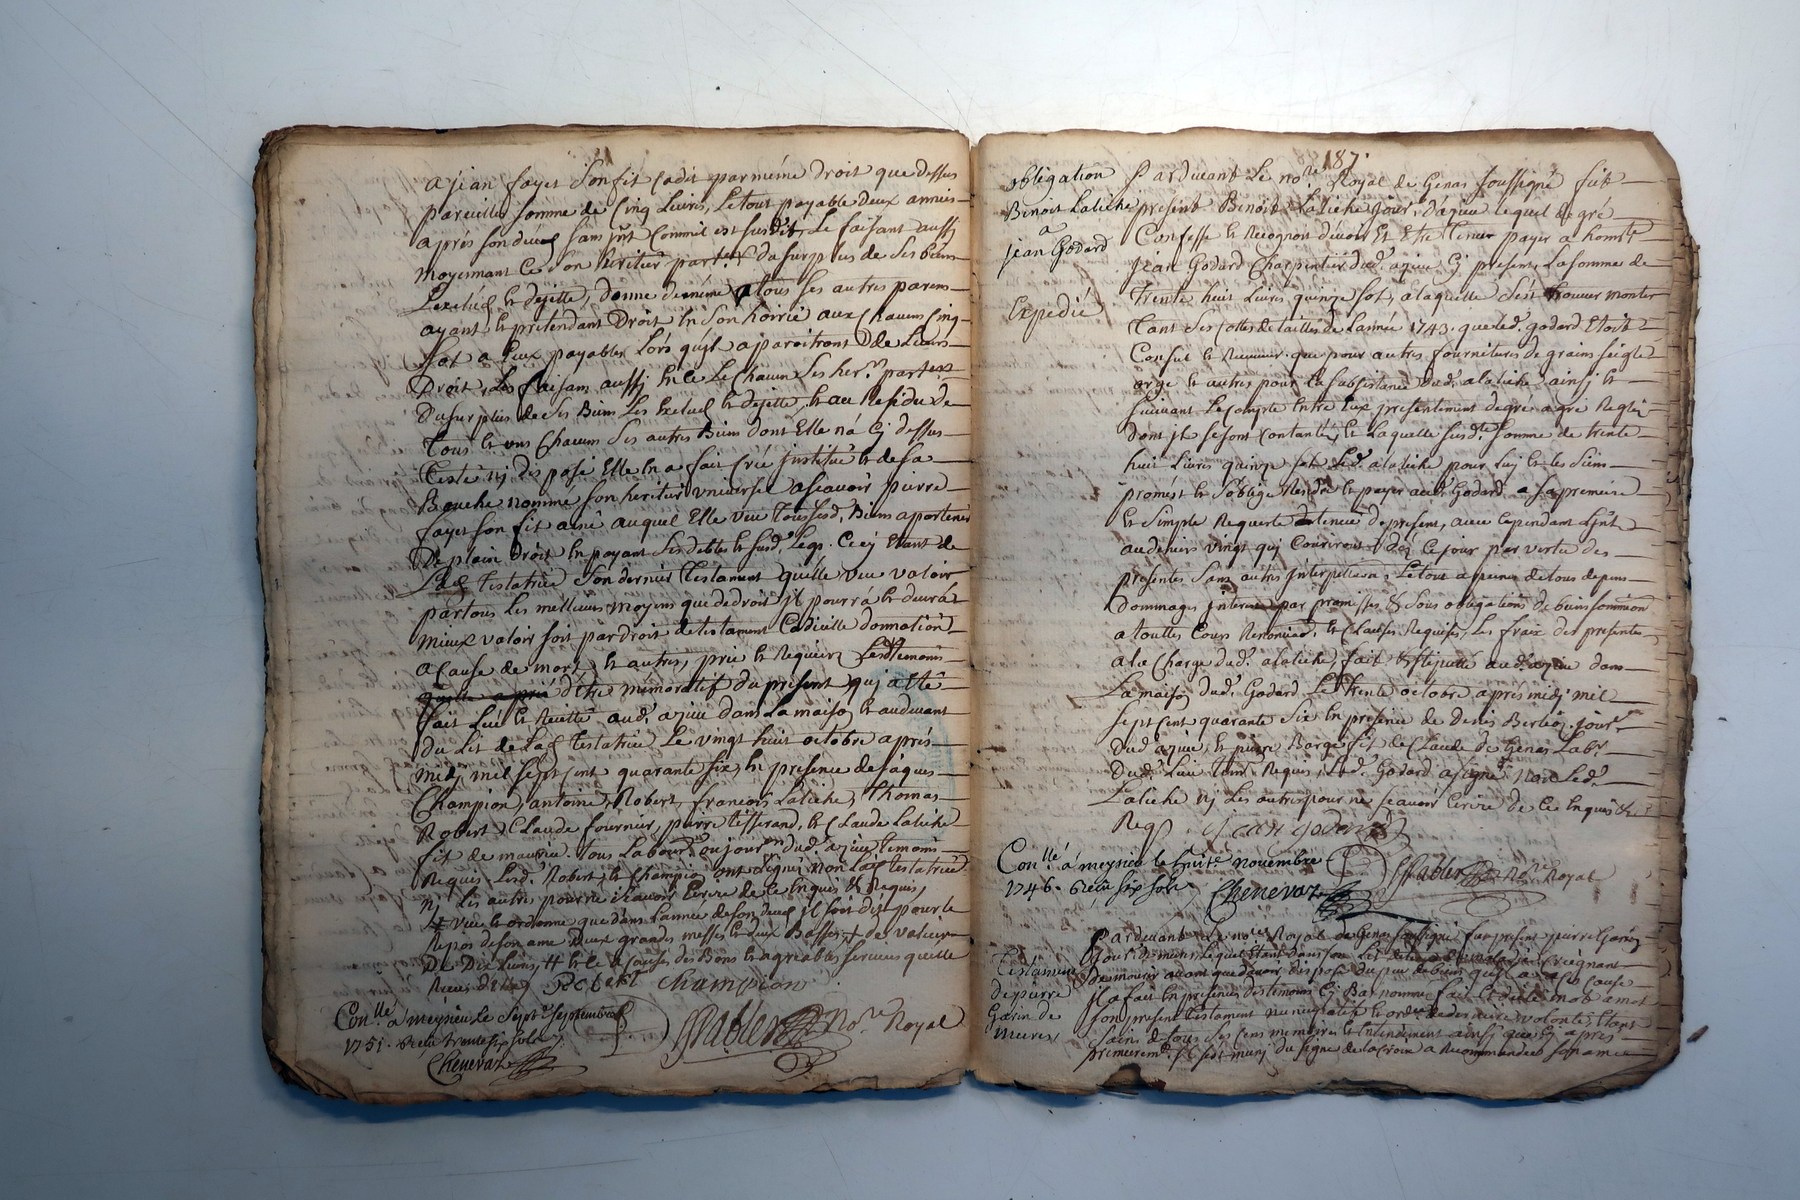 a jean fayet son fit cadit par même droit que dessus
pareille somme de Cinq Livres, Le tout payable deux années
après son décès sans jnt Comme est susdit, Le faisant aussj
moyennant Ce son heritier part.er du surplus de ses biens
L'exclud et dejette, donne de même a tous ses autres parens
ayant et prétendant Droit en son horrie aux Chacun Cinq
sol a Eux payables Lors qu'jl aparoitront de Leurs
Droit, Les faisans aussj en ce Le Chacun ses her.rs part.ers
Du surplus de ses Biens Les Exclud et dejette, et au Residu de
Tous et uns Chacuns ses autres Biens dont Elle n'a Cj dessus
Testé nj disposé Elle en a fait Crée justitué et de sa
Bouche nommé son heritier universel ascavoir pierre
fayet son fit ainé auquel Elle veu tous susd. Biens apartenir
De plain droit en payant ses debtes et susd. Legs. Cecy Etant de
Lad. testatrice son dernier Testament qu'elle veu valoir
par tous les meilleurs moyens que de droit jl pourrá et devrá
mieux valoir soit par droit de testament Codicille donnation
a Cause de mort, et autres, prie et Requiert Lesd. temoins
d'être mémoratif du présent quj a Eté
fait Lu et Recitté aud. azieu dans La maison et au devant
du Lit de Lad. testatrice Le vingt huit octobre après
midj mil sept cent quarante six, en presence de jàques
Champion, antoine Robert, francois Laliche, Thomas
Robert, Claude fournier, pierre tisserand, et Claude Laliche
fit de maurice. tous Labour. ou jour. dud. azieu temoins
Requis, Lesd. Robert et Champion ont signé non Lad. testatrice
nj Les autres pour ne scavoir Ecrire de ce Enquis & Requis,
# veu et ordonne que dans L'année de son deced jl soit dit pour le
Repos de son ame deux grandes messes et deux Basses + de valeur
De Dix Livres, # et ce a Causes des Bons et agreables services qu'elle
Robert Champion
Con.llé a meysieu Le Sept.e Septembre
1751. Recu trente six sols
Chenevaz
Pablet No.re Royal
187
obligation
Benoit Laliche
a
jean Godard
Expedié
Par devant Le no.re Royal de Genas soussigné fut
present Benoit Laliche jour. d'azieu lequel de gré
Confesse et Recognoit devoir et Etre tenu payer a honn.te
jean Godard Charpentier dud. azieu Cj present, La somme de
Trente huit Livres quinze sol, a laquelle s'est trouver monter
Tant ses cottes de tailles de L'année 1743. que led. godard Etoit
Consul et que pour autres fournitures de grains seigle
orge et autres pour la subsistance dud. alaliche ainsj et
suivant Le compte Entre Eux presentement de gré a gré Reglé
dont jls se sont contantés, et Laquelle susd.te somme de trente
huit Livres quinze sol Led. alaliche pour Luj et les siens
promést et s'oblige Rendre et payer aud. Godard a sa premiere
et simple Requeste d'present, avec cependant jnt
au denier vingt quj Couriront dès ce jour par vertu des
presentes sans autres jnterpellation, Le tout a peine de tous depens
Dommages jnterest par promesses & sous obligations de biens soumission
a touttes Cours Renonciat. et Clauses Requises, Les fraix des presentes
a la Charge dud. alaliche, fait & stipullé aud. azieu dans
La maison dud. Godard Le Trente octobre après midj mil
sept cent quarante six en presence de Denis Berlioz. jour.
dud. azieu, et pierre Barge fit de Claude de Genas Lab.r
dud. Lieu tem. Requis, Led. Godard a signé non Led.
Laliche nj Les autres pour ne scavoir Ecrire de Ce Enquis &
Req. jean godard
Con.llé a meysieu le huit.e novembre
1746. Recu six sols Chenevaz
Pablet No.re Royal
Testament
de pierre
Garin de
Par devant Le no.re Royal de Genas soussigné fut present pierre Garin
jour. lequel Etant dans son Lit Craignant
De mourir avant que d'avoir disposé du peu de biens qu'jl a a Ces Cause
jl a fait en presence des temoins Cj Bas nommé fait et dicté mot a mot
son present testament nuncupatif et ordre de derniere volonté, Etant
sains de tous ses sens memoire et Entendement ainsj que Cj après
premierem.t s'est munj du signe de la Croix a Recommandé son ame